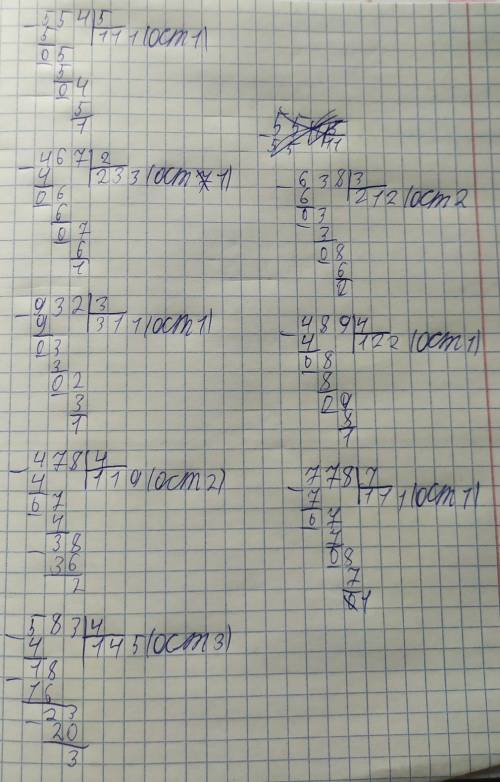 554|5
5 111(ост1)
05
5
04
5
1
467|2
4 233(ост 1)
06
6
07
6
1
638|3
6 212(ост2
03
3
08
6
2
932|3
9 311(ост1)
03
3
02
3
1
489|4
4 122(ост1)
08
8
09
8
1
478|4
4 119(ост2)
07
4
38
36
2
778|7
7 111(ост1)
07
7
08
7
1
583|4
4 145(ост3)
18
16
23
20
3